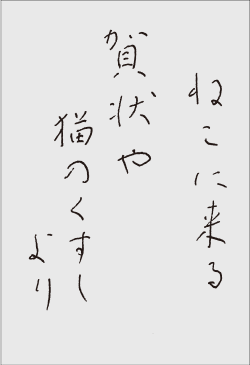 ねこに来る
賀状や
猫のくすし
より